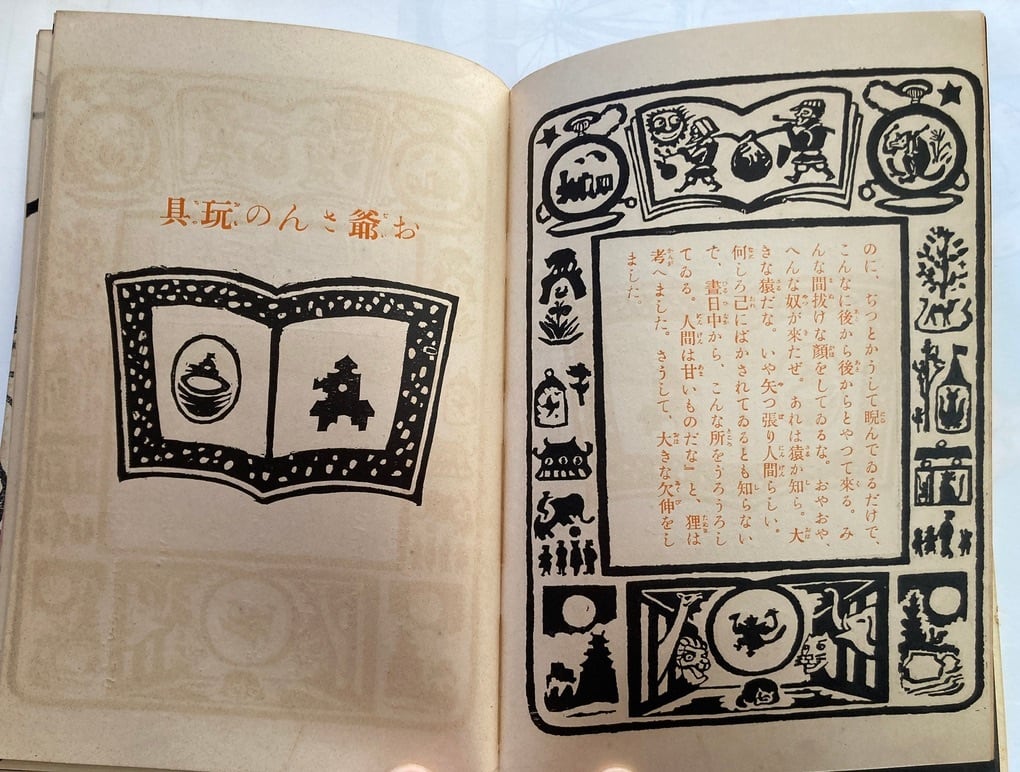 のに、ぢつとかうして睨んでゐるだけで、
こんなに後から後からとやつて來る。み
んな間拔けな顔をしてゐるな。おやおや、
へんな奴が來たぜ。あれは猿か知ら。大
きな猿だな。いや矢つ張り人間らしい。
何しろ己にばかされてゐるとも知らない
で、晝日中から、こんな所をうろうろし
てゐる。人間は甘いものだな』と、狸は
考へました。さうして、大きな欠伸をし
ました。
お爺さんの玩具